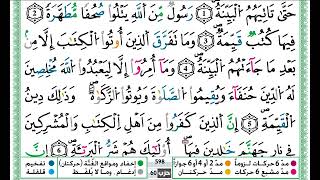 حَتَّىٰ تَأْتِيَهُمُ ٱلْبَيِّنَةُ ١ رَسُولٌ مِّنَ ٱللَّهِ يَتْلُوا۟ صُحُفًا مُّطَهَّرَةً ٢
فِيهَا كُتُبٌ قَيِّمَةٌ ٣ وَمَا تَفَرَّقَ ٱلَّذِينَ أُوتُوا۟ ٱلْكِتَٰبَ إِلَّا مِنۢ
بَعْدِ مَا جَآءَتْهُمُ ٱلْبَيِّنَةُ ٤ وَمَآ أُمِرُوٓا۟ إِلَّا لِيَعْبُدُوا۟ ٱللَّهَ مُخْلِصِينَ
لَهُ ٱلدِّينَ حُنَفَآءَ وَيُقِيمُوا۟ ٱلصَّلَوٰةَ وَيُؤْتُوا۟ ٱلزَّكَوٰةَ وَذَٰلِكَ دِينُ
ٱلْقَيِّمَةِ ٥ إِنَّ ٱلَّذِينَ كَفَرُوا۟ مِنْ أَهْلِ ٱلْكِتَٰبِ وَٱلْمُشْرِكِينَ
فِى نَارِ جَهَنَّمَ خَٰلِدِينَ فِيهَآ أُو۟لَٰٓئِكَ هُمْ شَرُّ ٱلْبَرِيَّةِ ٦
مدّ ٦ حركات لزوماً مدّ ٢ أو ٤ أو ٦ جوازاً 598 إخفاء ومواقع الغُنَّة (حركتان) تفخيم
مدّ مشبع ٦ حركات مدّ حركتان حزب 60 إدغام ، وما لا يُلفَظ قلقلة